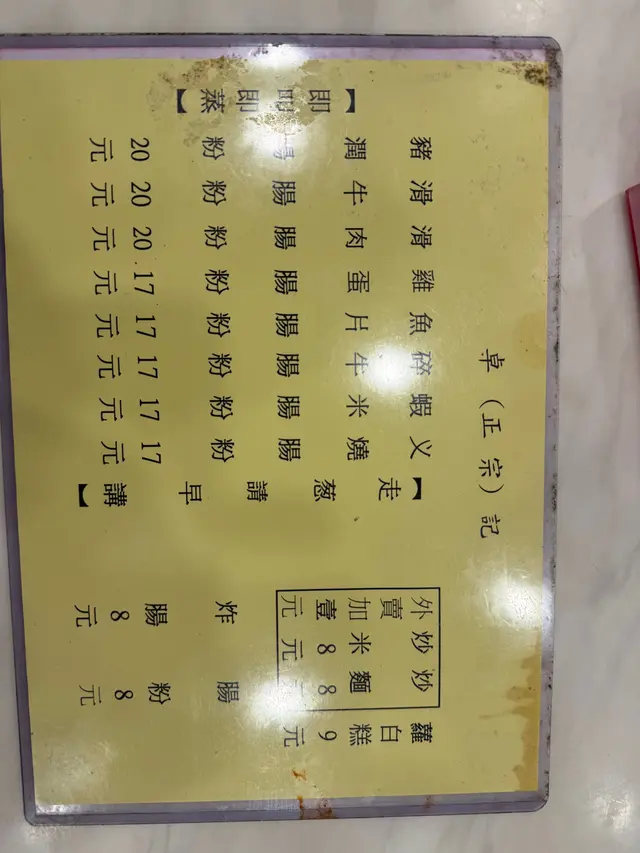 卓(正宗)記
蘿白糕9元
炒麵8元
炒米8元
外賣加壹元
腸粉8元
炸腸8元
【走葱請早講】
叉燒腸粉17元
蝦米腸粉17元
碎牛腸粉17元
魚片腸粉17元
雞蛋腸粉17元
滑肉腸粉20元
滑牛腸粉20元
豬潤腸粉20元
【即叫即蒸】